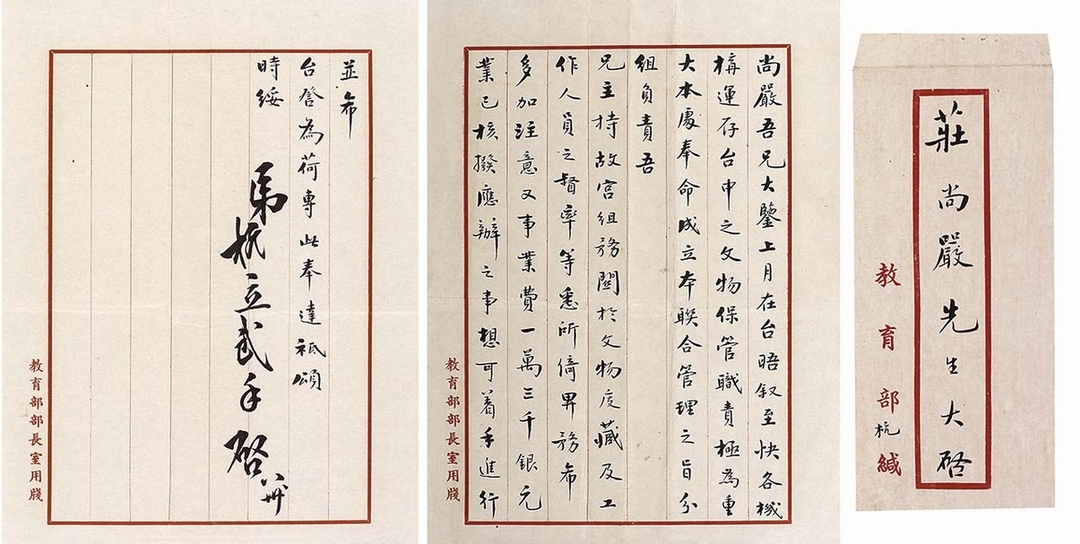 莊尚嚴先生大啓
教育部杭緘
尚嚴吾兄大鑒上月在台晤叙至快各機
構運存台中之文物保管職責極為重
大本處奉命成立本聯合管理之旨分
組負責吾
兄主持故宮組務關於文物庋藏及工
作人員之督率等悉所倚畀務希
多加注意又事業費一萬三千銀元
業已核撥應辦之事想可着手進行
教育部部長室用牋
並希
台詧為荷專此奉達祗頌
時綏
弟杭立武手啓
教育部部長室用牋